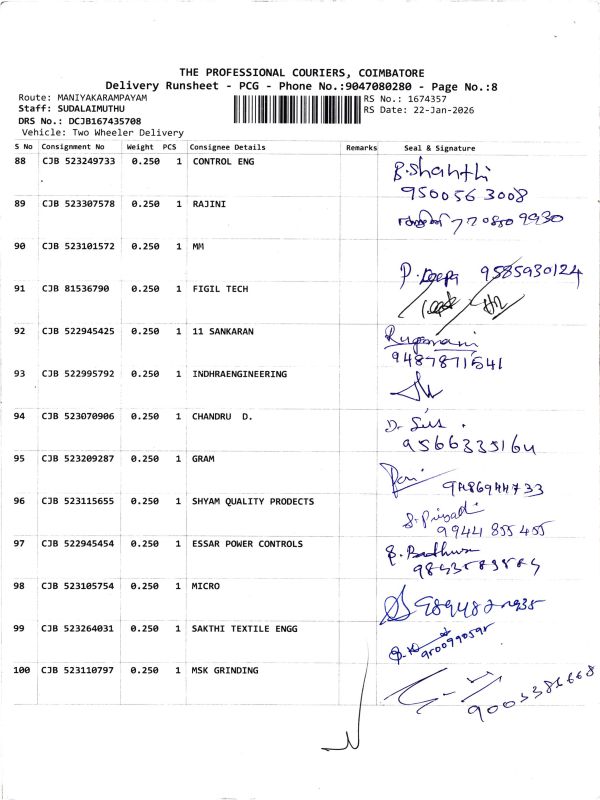 THE PROFESSIONAL COURIERS, COIMBATORE
Delivery Runsheet - PCG - Phone No.:9047080280 - Page No.:8
Route: MANIYAKARAMPAYAM
RS No.: 1674357
Staff: SUDALAIMUTHU
RS Date: 22-Jan-2026
DRS No.: DCJB167435708
Vehicle: Two Wheeler Delivery
S No Consignment No Weight PCS Consignee Details Remarks Seal & Signature
88 CJB 523249733 0.250 1 CONTROL ENG B.Shanthi
9500563008
89 CJB 523307578 0.250 1 RAJINI
7708509930
90 CJB 523101572 0.250 1 MM
P. Deepa 9585930124
91 CJB 81536790 0.250 1 FIGIL TECH
92 CJB 522945425 0.250 1 11 SANKARAN Rugamani
9487871541
93 CJB 522995792 0.250 1 INDHRAENGINEERING
94 CJB 523070906 0.250 1 CHANDRU D. D.
9566335164
95 CJB 523209287 0.250 1 GRAM
9486944733
96 CJB 523115655 0.250 1 SHYAM QUALITY PRODECTS S. Priyadi
9944 855 455
97 CJB 522945454 0.250 1 ESSAR POWER CONTROLS
98 CJB 523105754 0.250 1 MICRO
99 CJB 523264031 0.250 1 SAKTHI TEXTILE ENGG
9500990595
100 CJB 523110797 0.250 1 MSK GRINDING
9003381668